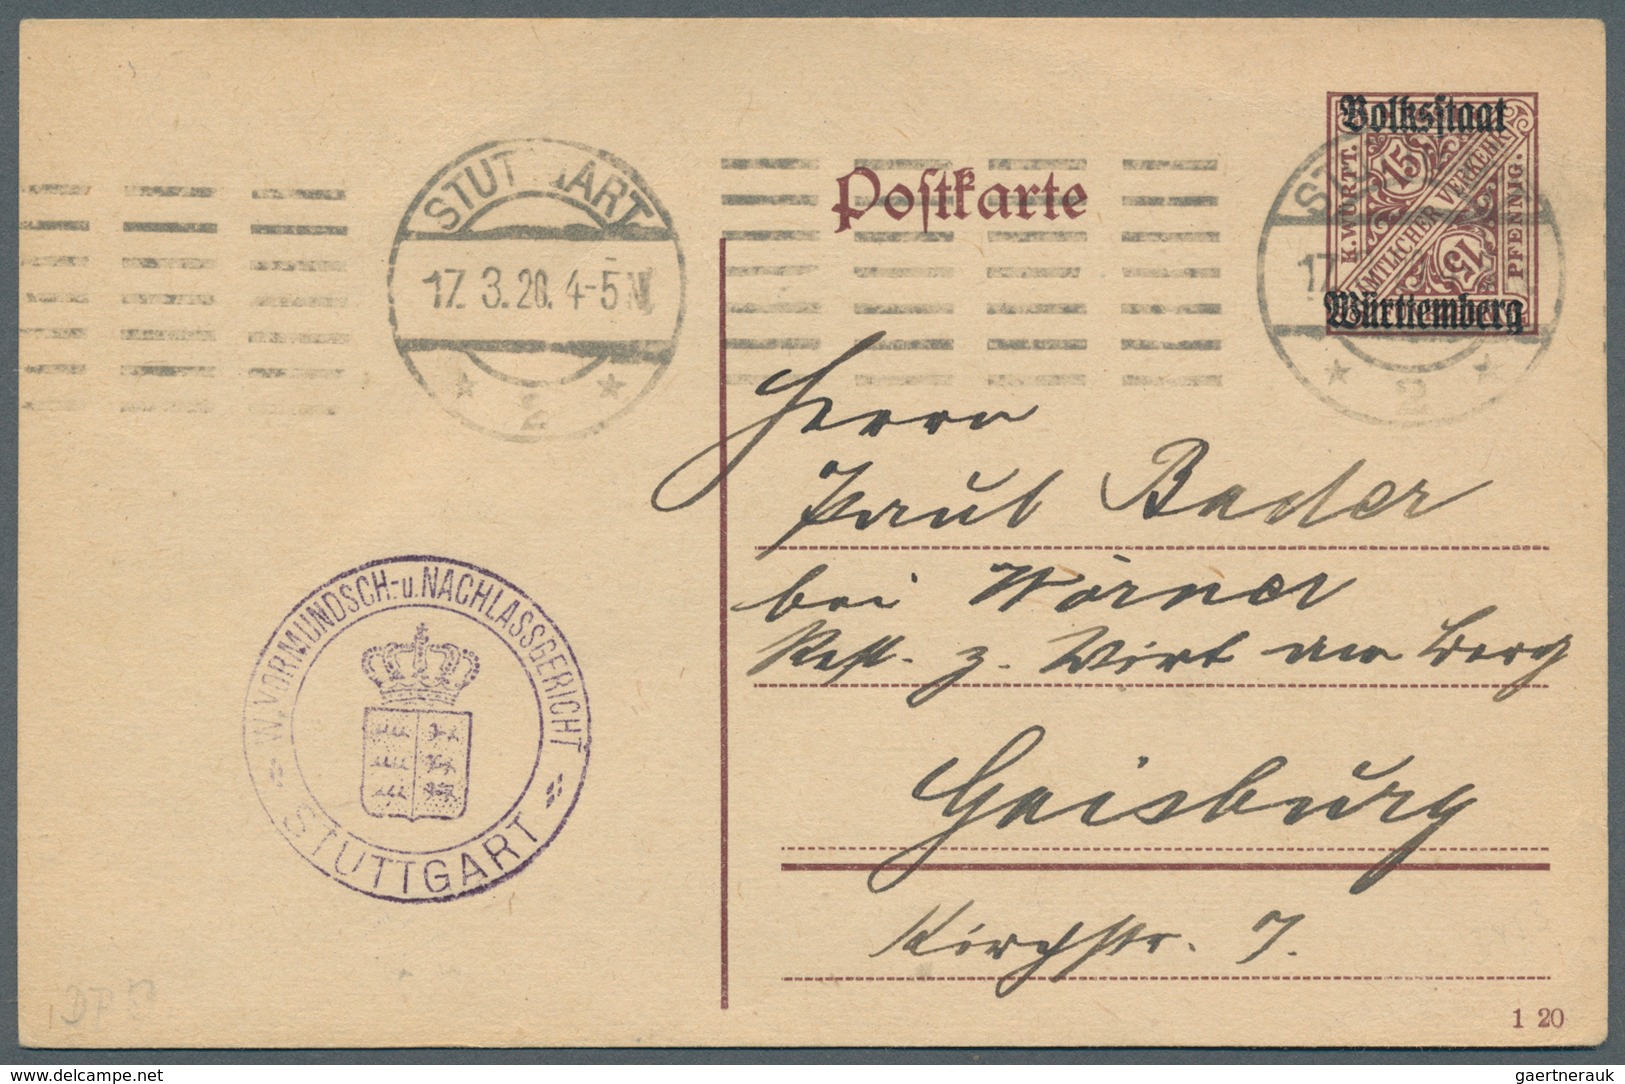 Volksstaat
K. WÜRTT.
15
AMTLICHER VERKEHR
15
PFENNIG.
Württemberg
Postkarte
STUTTGART
17. 3. 20. 4-5 N.
2.
ST
17.
2
Herrn
Paul Bader
bei Wörner
Rest. z. Wirt am Berg
Gaisburg
Kirchstr. 7.
W. VORMUNDSCH.- u. NACHLASSGERICHT
STUTTGART
1 20
www.delcampe.net
gaertnerauk